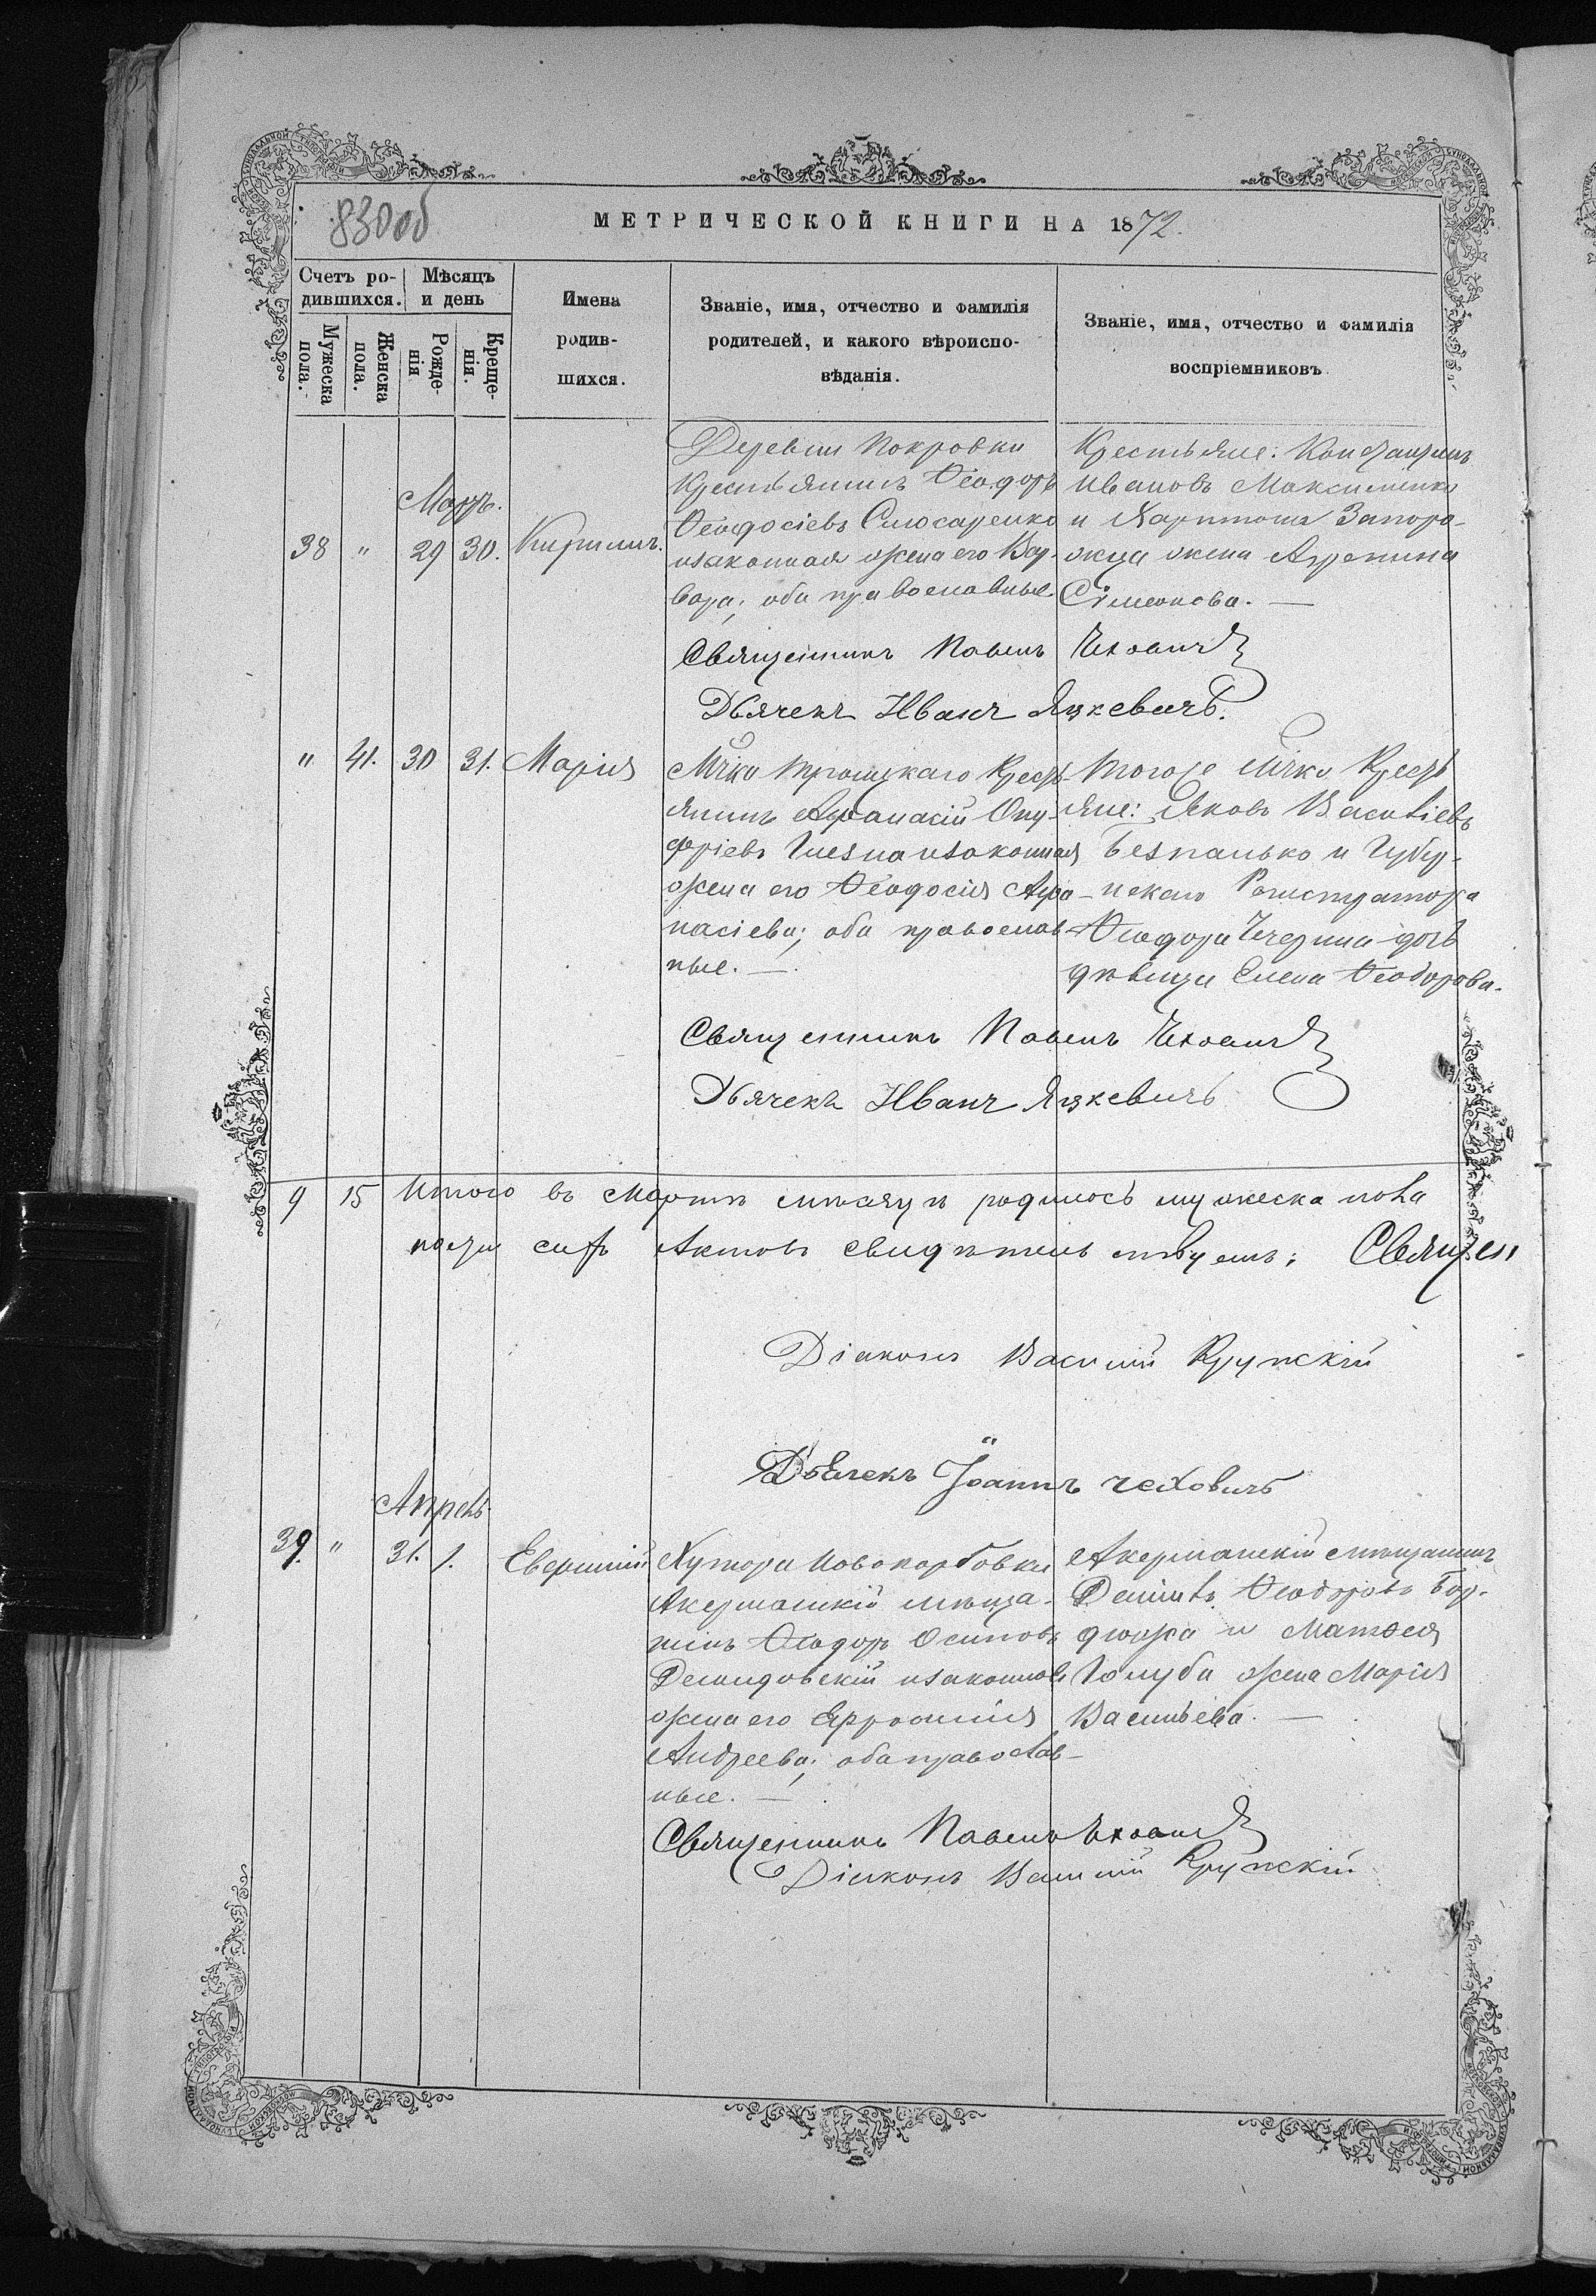 830об
МЕТРИЧЕСКОЙ КНИГИ НА 1872.
Счетъ ро-
дившихся.
Мѣсяцъ
и день
Имена
родив-
шихся.
Званіе, имя, отчество и фамилія
родителей, и какого вѣроиспо-
вѣданія.
Званіе, имя, отчество и фамилія
воспріемниковъ.
Мужеска
пола.
Женска
пола.
Рожде-
нія
Креще-
нія.
Мартъ.
38 " 29 30. Кириллъ.
Деревни Покровки
Крестьянинъ Ѳеодоръ
Ѳеодосіевъ Слюсаренко
изаконная жена его Вар-
вара; оба православные
Крестьяне: Константинъ
Ивановъ Максименко
и Харитона Запоро-
жца жена Агрепина
Сімеонова. —
Священникъ Павелъ Чеховичъ
Дьячекъ Иванъ Яцкевичъ.
" 41. 30 31. Марія
М-чка Троицкаго Кресть-
янинъ Аѳанасій Ону-
фріевъ изаконная
жена его Ѳеодосія Аѳа-
насіева; оба православ-
ные. —
Тогоже М-чка Кресть
яне: Яковъ Василіевъ
Безпалько и Губер-
нскаго Регистратора
Ѳеодора дочь
дѣвица Елена Ѳеодорова.
Священникъ Павелъ Чеховичъ
Дьячекъ Иванъ Яцкевичъ
9 15 Итого въ Мартѣ мѣсяцѣ родилось мужеска пола
сихъ Актовъ свидѣтельствуемъ: Священ
Діаконъ Василій Крупскій
Дьячекъ Іоаннъ Чеховичъ
Апрель
39. " 31. 1. Евѳимій
Хутора Новокарбовки
Акерманскій мѣща-
нинъ Ѳеодоръ Осиповъ
Демидовскій изаконная
жена его Евфросинія
Андреева; оба православ-
ные. —
Акерманскій мѣщанинъ
Ѳеодоровъ Бор-
дюжа и Матѳея
Голуба жена Марія
Васильева. —
Священникъ Павелъ Чеховичъ
Діаконъ Василій Крупскій